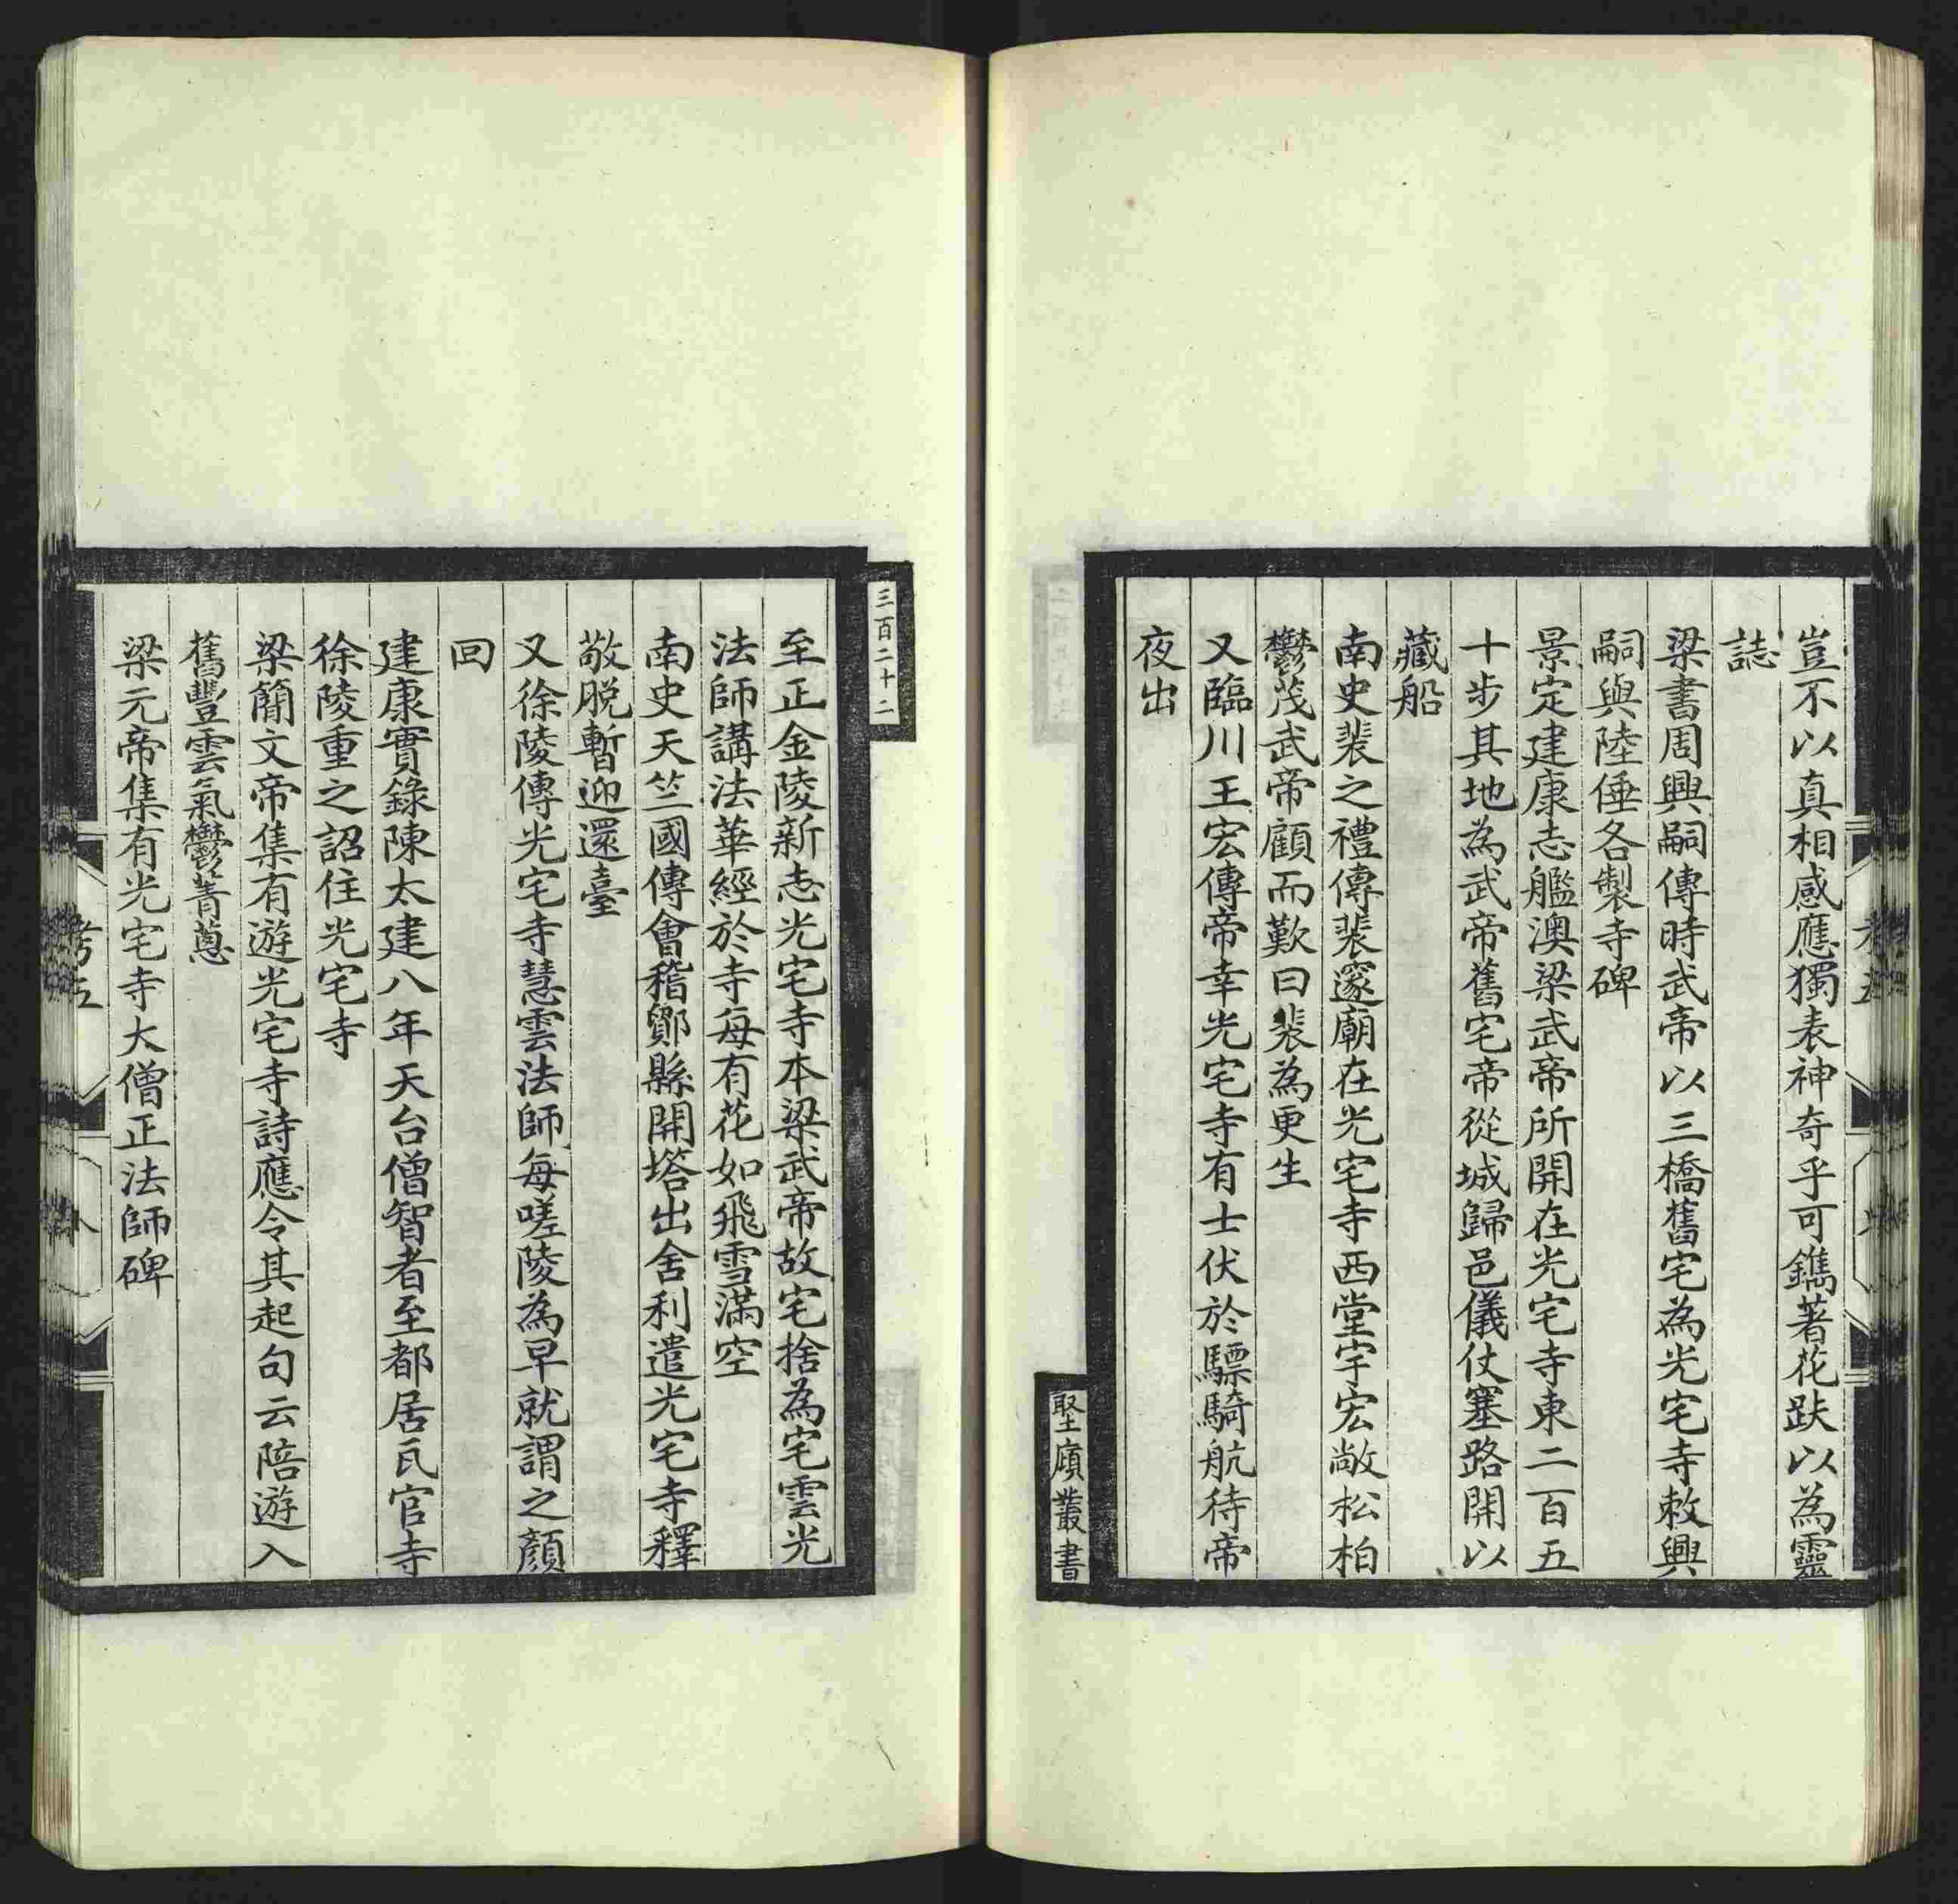 豈不以真相感應獨表神奇乎可鐫著花趺以為靈
誌
梁書周興嗣傳時武帝以三橋舊宅為光宅寺敕興
嗣與陸倕各製寺碑
景定建康志艦澳梁武帝所開在光宅寺東二百五
十步其地為武帝舊宅帝從城歸邑儀仗塞路開以
藏船
南史裴之禮傳裴邃廟在光宅寺西堂宇宏敞松柏
鬱茂武帝顧而歎曰裴為更生
又臨川王宏傳帝幸光宅寺有士伏於驃騎航待帝
夜出
堅頎叢書
三百二十二
至正金陵新志光宅寺本梁武帝故宅捨為宅雲光
法師講法華經於寺每有花如飛雪滿空
南史天竺國傳會稽鄮縣開塔出舍利遣光宅寺釋
敬脱暫迎還臺
又徐陵傳光宅寺慧雲法師每嗟陵為早就謂之顏
回
建康實錄陳太建八年天台僧智者至都居瓦官寺
徐陵重之詔住光宅寺
梁簡文帝集有遊光宅寺詩應令其起句云陪遊入
舊豐雲氣鬱菁蔥
梁元帝集有光宅寺大僧正法師碑
考五